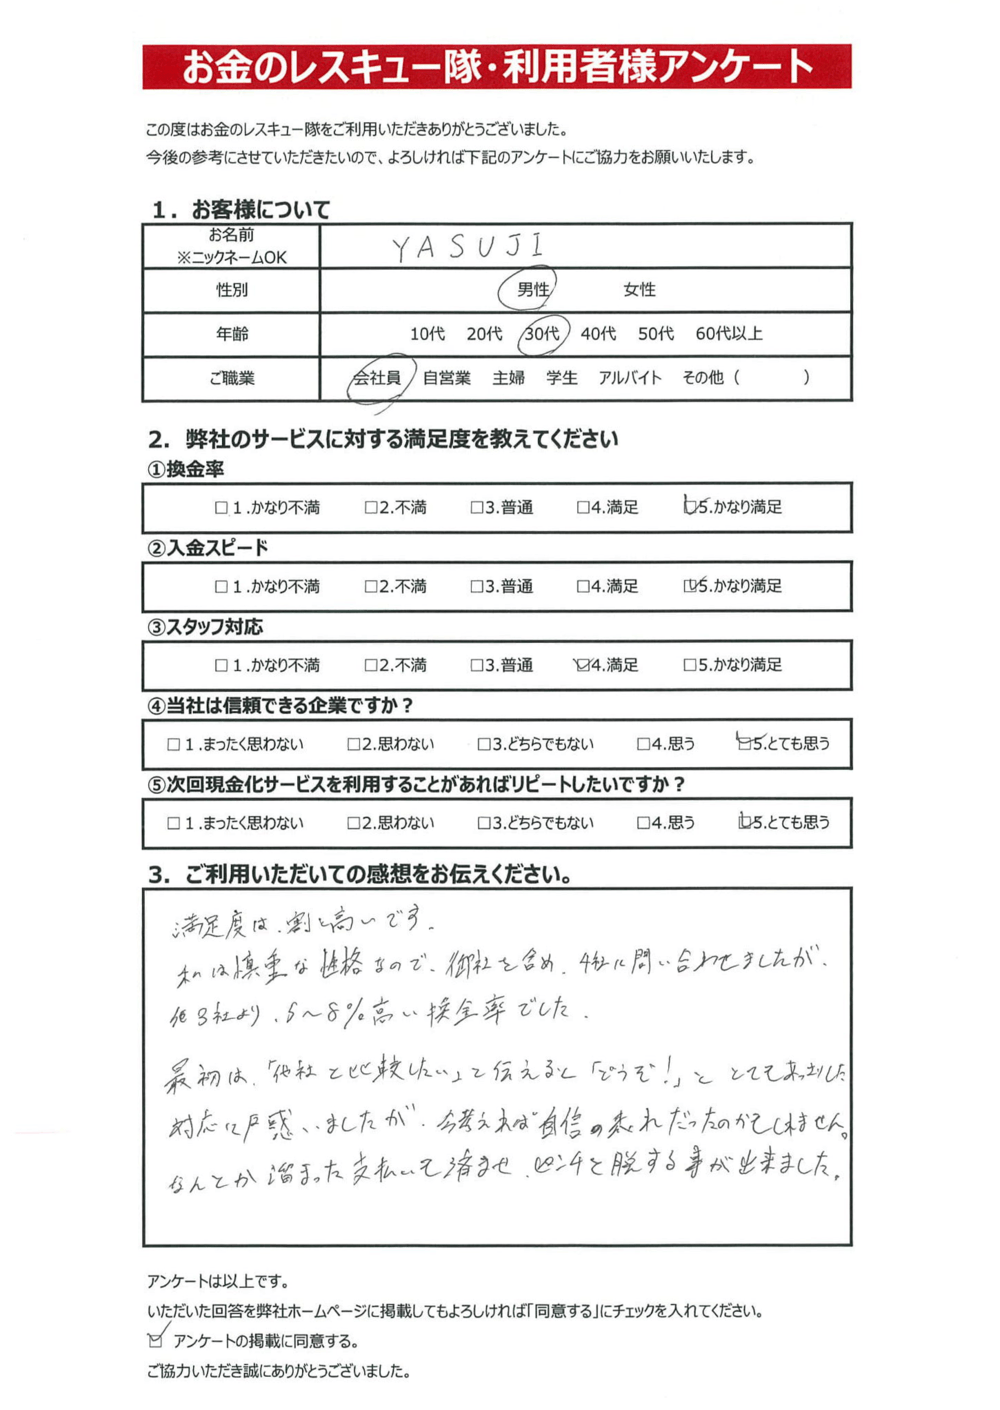 お金のレスキュー隊・利用者様アンケート
この度はお金のレスキュー隊をご利用いただきありがとうございました。
今後の参考にさせていただきたいので、よろしければ下記のアンケートにご協力をお願いいたします。
1. お客様について
お名前
※ニックネームOK
YASUJI
性別 男性 女性
年齢 10代 20代 30代 40代 50代 60代以上
ご職業 会社員 自営業 主婦 学生 アルバイト その他（ ）
2. 弊社のサービスに対する満足度を教えてください
①換金率
□1.かなり不満 □2.不満 □3.普通 □4.満足 ☑5.かなり満足
②入金スピード
□1.かなり不満 □2.不満 □3.普通 □4.満足 ☑5.かなり満足
③スタッフ対応
□1.かなり不満 □2.不満 □3.普通 ☑4.満足 □5.かなり満足
④当社は信頼できる企業ですか？
□1.まったく思わない □2.思わない □3.どちらでもない □4.思う ☑5.とても思う
⑤次回現金化サービスを利用することがあればリピートしたいですか？
□1.まったく思わない □2.思わない □3.どちらでもない □4.思う ☑5.とても思う
3. ご利用いただいての感想をお伝えください。
満足度は、割と高いです。
私は慎重な性格なので、御社を含め、4社に問い合わせましたが、
他3社より、5～8%高い換金率でした。
最初は、「他社と比較したい」と伝えると「どうぞ!」ととてもあっさりした
対応に戸惑いましたが、今考えれば自信の表れだったのかもしれません。
なんとか溜まった支払いも済ませ、ピンチを脱する事が出来ました。
アンケートは以上です。
いただいた回答を弊社ホームページに掲載してもよろしければ「同意する」にチェックを入れてください。
☑ アンケートの掲載に同意する。
ご協力いただき誠にありがとうございました。